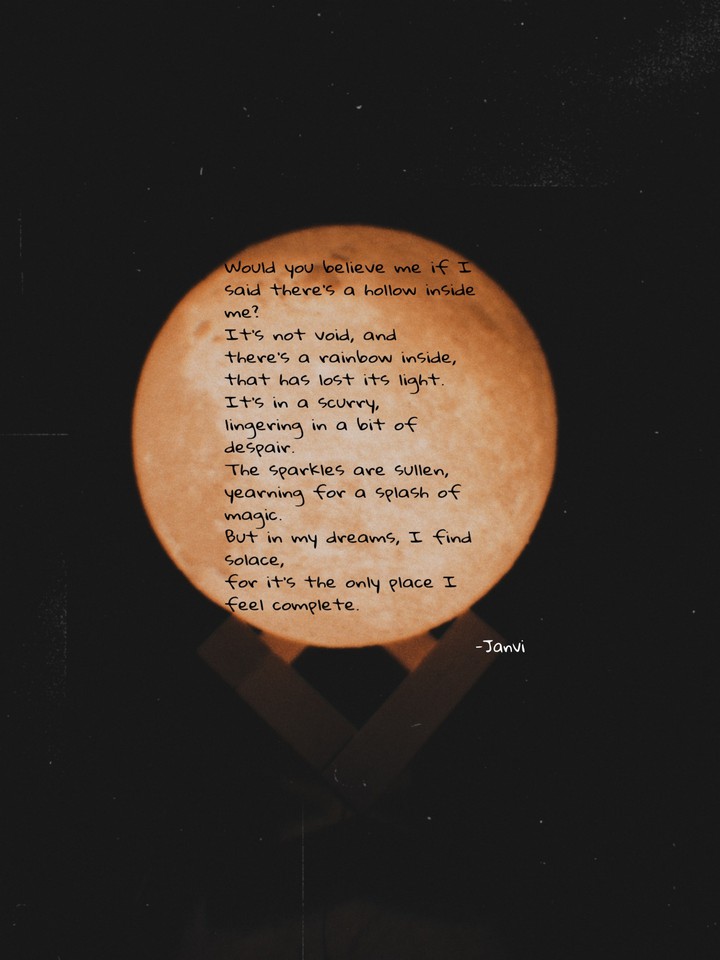 Would you believe me if I
said there's a hollow inside
me?
It's not void, and
there's a rainbow inside,
that has lost its light.
It's in a scurry,
lingering in a bit of
despair.
The sparkles are sullen,
yearning for a splash of
magic.
But in my dreams, I find
solace,
for it's the only place I
feel complete.
-Janvi